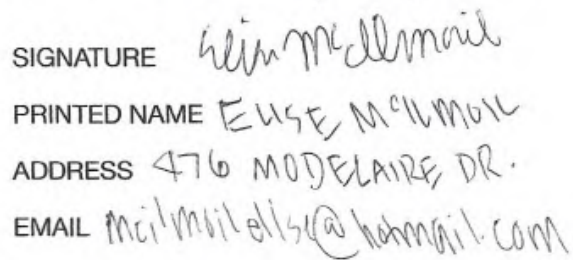 SIGNATURE Elise McIlmoil
PRINTED NAME ELISE McIlMOIL
ADDRESS 476 MODELAIRE DR.
EMAIL mcilmoilelise@hotmail.com